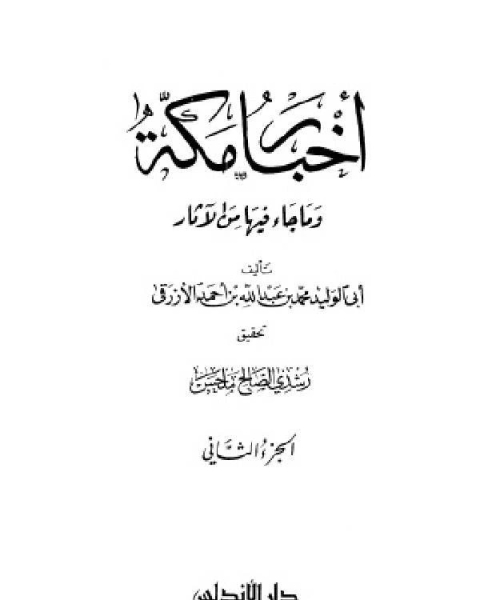 أخبار مكة
وما جاء فيها من الآثار
تأليف
أبي الوليد محمد بن عبدالله بن أحمد الأزرقي
تحقيق
رشدي الصالح ملحس
الجزء الثاني
دار الأندلس